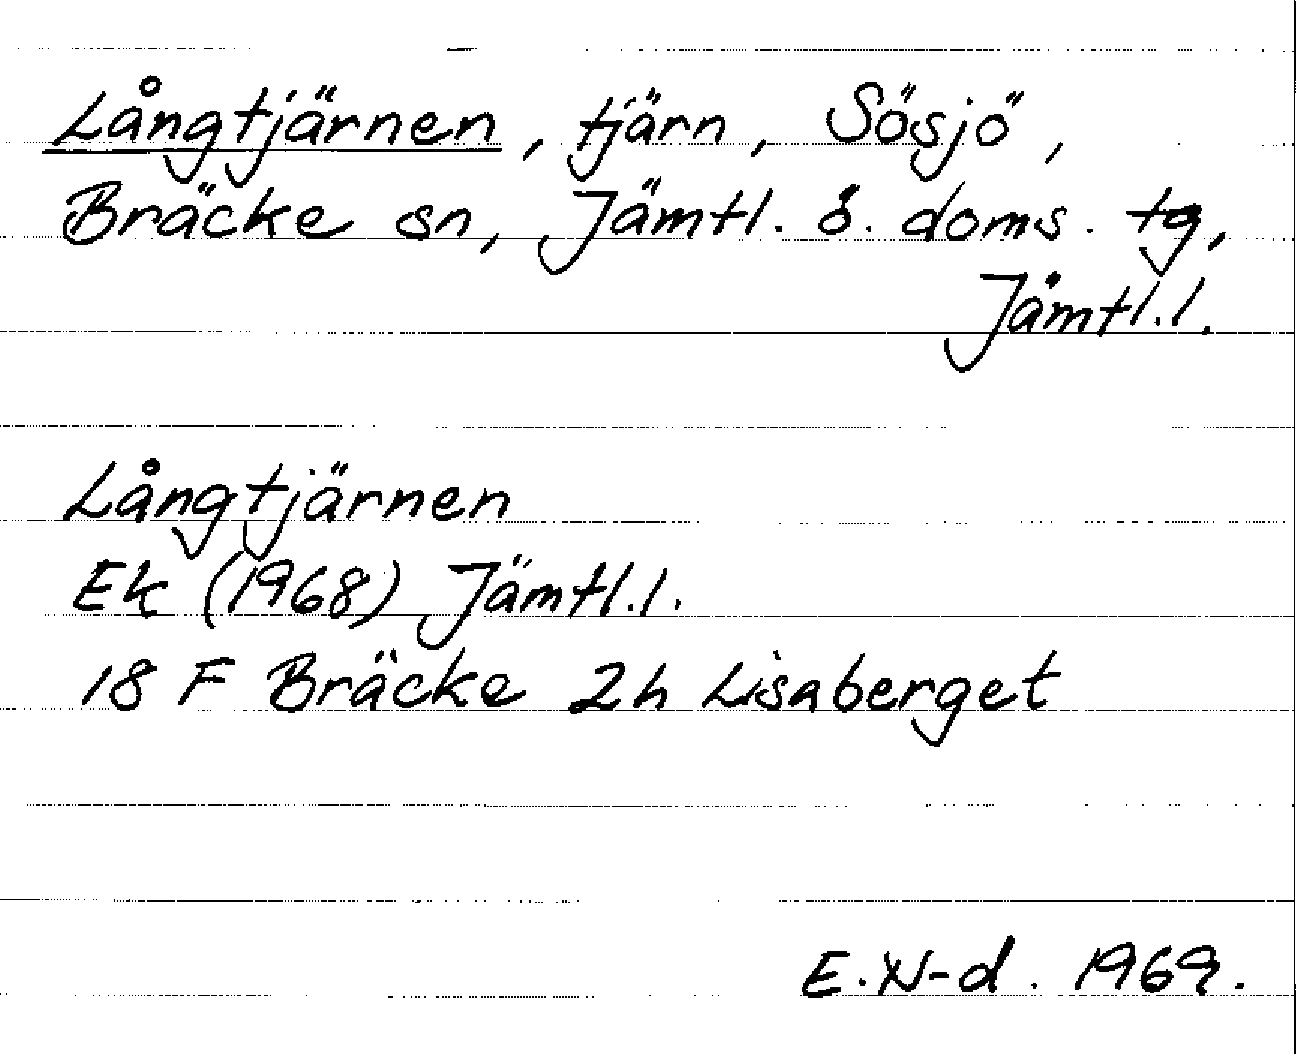 Långtjärnen, tjärn, Sösjö,
Bräcke sn, Jämtl. ö. doms. tg,
Jämtl.l.
Långtjärnen
Ek (1968) Jämtl.l.
18 F Bräcke 2h Lisaberget
E.N-d. 1969.